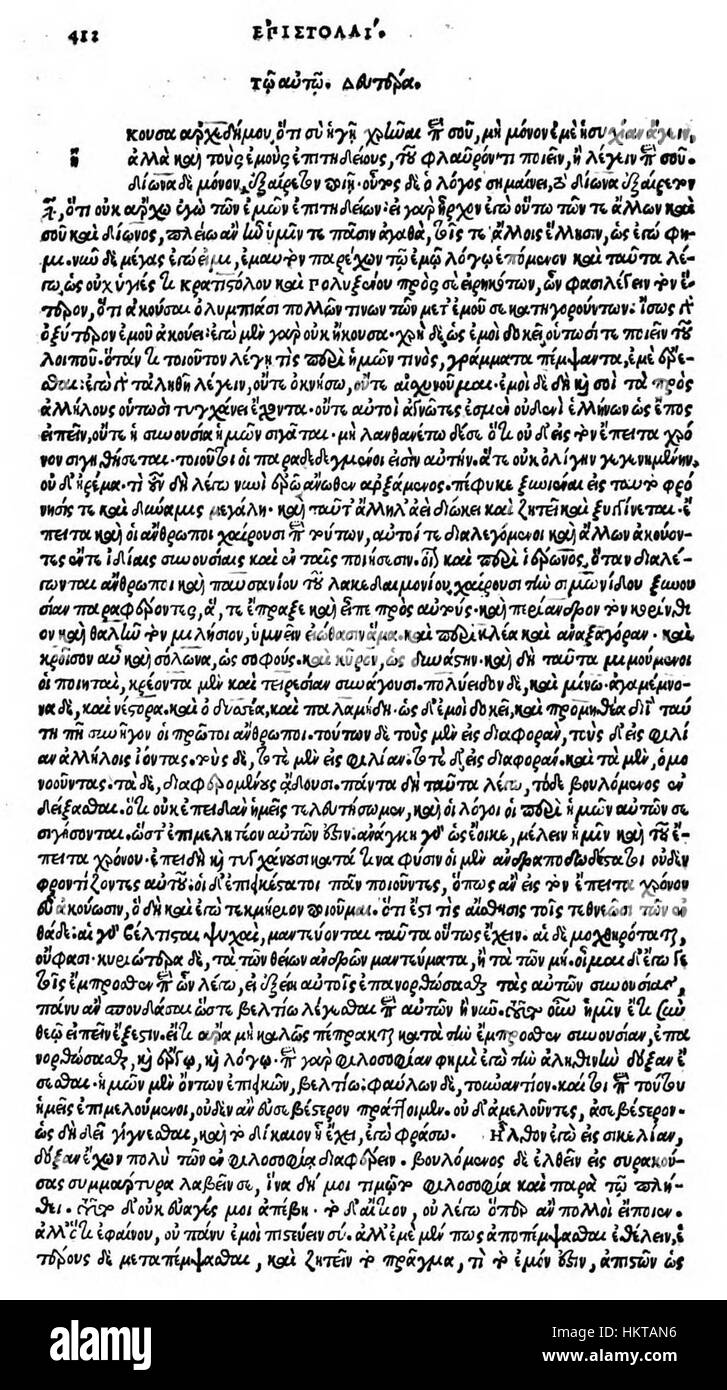 412 ΕΠΙΣΤΟΛΑΙ.
Τῷ αὐτῷ. Δευτέρα.
κουσα ἀρχεδήμου, ὅτι σὺ ἡγῇ χρῆναι περὶ σοῦ, μὴ μόνον ἐμὲ ἡσυχίαν ἄγειν,
ἤ ἀλλὰ καὶ τοὺς ἐμοὺς ἐπιτηδείους, τοῦ φλαῦρόν τι ποιεῖν, ἢ λέγειν περὶ σοῦ.
δίωνα δὲ μόνον, ἐξαίρετον ποιῇ. οὗτος δὲ ὁ λόγος σημαίνει, τὸ δίωνα ἐξαίρετον
εἶναι, ὅτι οὐκ ἄρχω ἐγὼ τῶν ἐμῶν ἐπιτηδείων· εἰ γὰρ ἦρχον ἐγὼ οὕτω τῶν τε ἄλλων καὶ
σοῦ καὶ δίωνος, πλείω ἂν ἦν ὑμῖν τε πᾶσιν ἀγαθὰ, τοῖς τε ἄλλοις ἕλλησιν, ὡς ἐγώ φη
μι. νῦν δὲ μέγας ἐγώ εἰμι, ἐμαυτὸν παρέχων τῷ ἐμῷ λόγῳ ἑπόμενον καὶ ταῦτα λέ
γω, ὡς οὐχ ὑγιές τι κρατιστόλου καὶ πολυξένου πρὸς σὲ εἰρηκότων, ὧν φασὶ λέγειν τὸν ἕ
τερον, ὅτι ἀκούσαι ὀλυμπίασι πολλῶν τινων τῶν μετ' ἐμοῦ σε κατηγορούντων. ἴσως γὰρ
ὀξύτερον ἐμοῦ ἀκούει· ἐγὼ μὲν γὰρ οὐκ ἤκουσα. χρὴ δὲ, ὡς ἐμοὶ δοκεῖ, οὑτωσί σε ποιεῖν τοῦ
λοιποῦ. ὅταν τι τοιοῦτον λέγῃ τὶς περὶ ἡμῶν τινός, γράμματα πέμψαντα, ἐμὲ ἐρέ
σθαι· ἐγὼ γὰρ τἀληθῆ λέγειν, οὔτε ὀκνήσω, οὔτε αἰσχυνοῦμαι. ἐμοὶ δὲ δὴ καὶ σοὶ τὰ πρὸς
ἀλλήλους οὑτωσὶ τυγχάνει ἔχοντα. οὔτε αὐτοὶ ἀγνῶτες ἐσμὲν οὐδενὶ ἑλλήνων ὡς ἔπος
εἰπεῖν, οὔτε ἡ συνουσία ἡμῶν σιγᾶται. μὴ λανθανέτω δέ σε ὅτι οὐδ' εἰς τὸν ἔπειτα χρό
νον σιγηθήσεται. τοιοῦτοι οἱ παραδεδεγμένοι εἰσὶν αὐτήν. ἅτε οὐκ ὀλίγην γεγενημένην,
οὐδ' ἠρέμα. τί οὖν δὴ λέγω νυνί; ἐρῶ ἄνωθεν ἀρξάμενος. πέφυκε ξυνιέναι εἰς ταυτὸ φρό
νησίς τε καὶ δύναμις μεγάλη. καὶ ταῦτ' ἄλληλ' ἀεὶ διώκει καὶ ζητεῖ καὶ ξυγγίνεται. ἔ
πειτα καὶ οἱ ἄνθρωποι χαίρουσι περὶ τούτων, αὐτοί τε διαλεγόμενοι καὶ ἄλλων ἀκούον-
τες ἔν τε ἰδίαις συνουσίαις καὶ ἐν ταῖς ποιήσεσιν. οἷον καὶ περὶ ἱέρωνος, ὅταν διαλέ
γωνται ἄνθρωποι καὶ παυσανίου τοῦ λακεδαιμονίου, χαίρουσι τὴν σιμωνίδου ξυνου
σίαν παραφέροντες, ἅ, τε ἔπραξε καὶ εἶπε πρὸς αὐτούς. καὶ περίανδρον τὸν κορίνθι
ον καὶ θαλῆν τὸν μιλήσιον, ὑμνεῖν εἰώθασιν ἅμα. καὶ περικλέα καὶ ἀναξαγόραν. καὶ
κροῖσον αὖ καὶ σόλωνα, ὡς σοφούς. καὶ κῦρον, ὡς δυνάστην. καὶ δὴ ταῦτα μιμούμενοι
οἱ ποιηταὶ, κρέοντα μὲν καὶ τειρεσίαν συνάγουσι. πολύειδον δὲ, καὶ μίνω. ἀγαμέμνο
να δὲ, καὶ νέστορα. καὶ ὀδυσσέα, καὶ παλαμήδη. ὡς δ' ἐμοὶ δοκεῖ, καὶ προμηθέα διῒ ταύ
τη πῃ συνῆγον οἱ πρῶτοι ἄνθρωποι. τούτων δὲ τοὺς μὲν εἰς διαφορὰν, τοὺς δ' εἰς φιλί
αν ἀλλήλοις ἰόντας. τοὺς δὲ, τοτὲ μὲν εἰς φιλίαν. τοτὲ δ' εἰς διαφοράν. καὶ τὰ μὲν, ὁμο
νοοῦντας. τὰ δὲ, διαφερομένους ᾄδουσι. πάντα δὴ ταῦτα λέγω, τόδε βουλόμενος ἐν
δείξασθαι. ὅτι οὐκ ἐπειδὰν ἡμεῖς τελευτήσωμεν, καὶ οἱ λόγοι οἱ περὶ ἡμῶν αὐτῶν σε
σιγήσονται. ὥστ' ἐπιμελητέον αὐτῶν ἐστιν. ἀνάγκη γὰρ ὡς ἔοικε, μέλειν ἡμῖν καὶ τοῦ ἔ-
πειτα χρόνου. ἐπειδὴ καὶ τυγχάνουσι κατά τινα φύσιν οἱ μὲν ἀνδραποδωδέστατοι οὐδὲν
φροντίζοντες αὐτοῦ· οἱ δ' ἐπιεικέστατοι πᾶν ποιοῦντες, ὅπως ἂν εἰς τὸν ἔπειτα χρόνον
εὖ ἀκούωσιν, ὃ δὴ καὶ ἐγὼ τεκμήριον ποιοῦμαι. ὅτι ἔστι τὶς αἴσθησις τοῖς τεθνεῶσι τῶν ἐν
θάδε· αἱ γὰρ βέλτισται ψυχαὶ, μαντεύονται ταῦτα οὕτως ἔχειν. αἱ δὲ μοχθηρόταται,
οὔ φασι. κυριώτερα δὲ, τὰ τῶν θείων ἀνδρῶν μαντεύματα, ἢ τὰ τῶν μή. οἶμαι δ' ἔγωγε
τοῖς ἔμπροσθεν περὶ ὧν λέγω, εἰ ἐξείη αὐτοῖς ἐπανορθώσασθαι τὰς αὐτῶν συνουσίας,
πάνυ ἂν σπουδάσαι ὥστε βελτίω λέγεσθαι περὶ αὐτῶν ἢ νῦν. τοῦτο οὖν ἡμῖν ἔτι σὺν
θεῷ εἰπεῖν ἔξεστιν. εἴ τι ἄρα μὴ καλῶς πέπρακται κατὰ τὴν ἔμπροσθεν συνουσίαν, ἐπα
νορθώσασθαι, καὶ ἔργῳ, καὶ λόγῳ. περὶ γὰρ φιλοσοφίαν φημὶ ἐγὼ τὴν ἀληθινὴν δόξαν ἔ
σεσθαι. ἡμῶν μὲν ὄντων ἐπιεικῶν, βελτίω; φαύλων δὲ, τοὐναντίον. καί τοι περὶ τούτου
ἡμεῖς ἐπιμελούμενοι, οὐδὲν ἂν εὐσεβέστερον πράττοιμεν. οὐδ' ἀμελοῦντες, ἀσεβέστερον-
ὡς δὴ δεῖ γίγνεσθαι, καὶ τὸ δίκαιον ᾗ ἔχει, ἐγὼ φράσω. Ηλθον ἐγὼ εἰς σικελίαν,
δόξαν ἔχων πολὺ τῶν ἐν φιλοσοφίᾳ διαφέρειν. βουλόμενος δὲ ἐλθεῖν εἰς συρακού-
σας συμμάρτυρα λαβεῖν σε, ἵνα δή μοι τιμῷτο φιλοσοφία καὶ παρὰ τῷ πλή-
θει. τοῦτο δ' οὐκ εὐαγές μοι ἀπέβη. τὸ δ' αἴτιον, οὐ λέγω ὅπερ ἂν πολλοὶ εἴποιεν.
ἀλλ' ὅτι ἐφαίνου, οὐ πάνυ ἐμοὶ πιστεύειν σύ. ἀλλ' ἐμὲ μέν πως ἀποπέμψασθαι ἐθέλειν, ἑ
τέρους δὲ μεταπέμψασθαι, καὶ ζητεῖν τὸ πρᾶγμα, τί τὸ ἐμόν ἐστιν, ἀπιστῶν ὡς
alamy
Image ID: HKTAN6
www.alamy.com